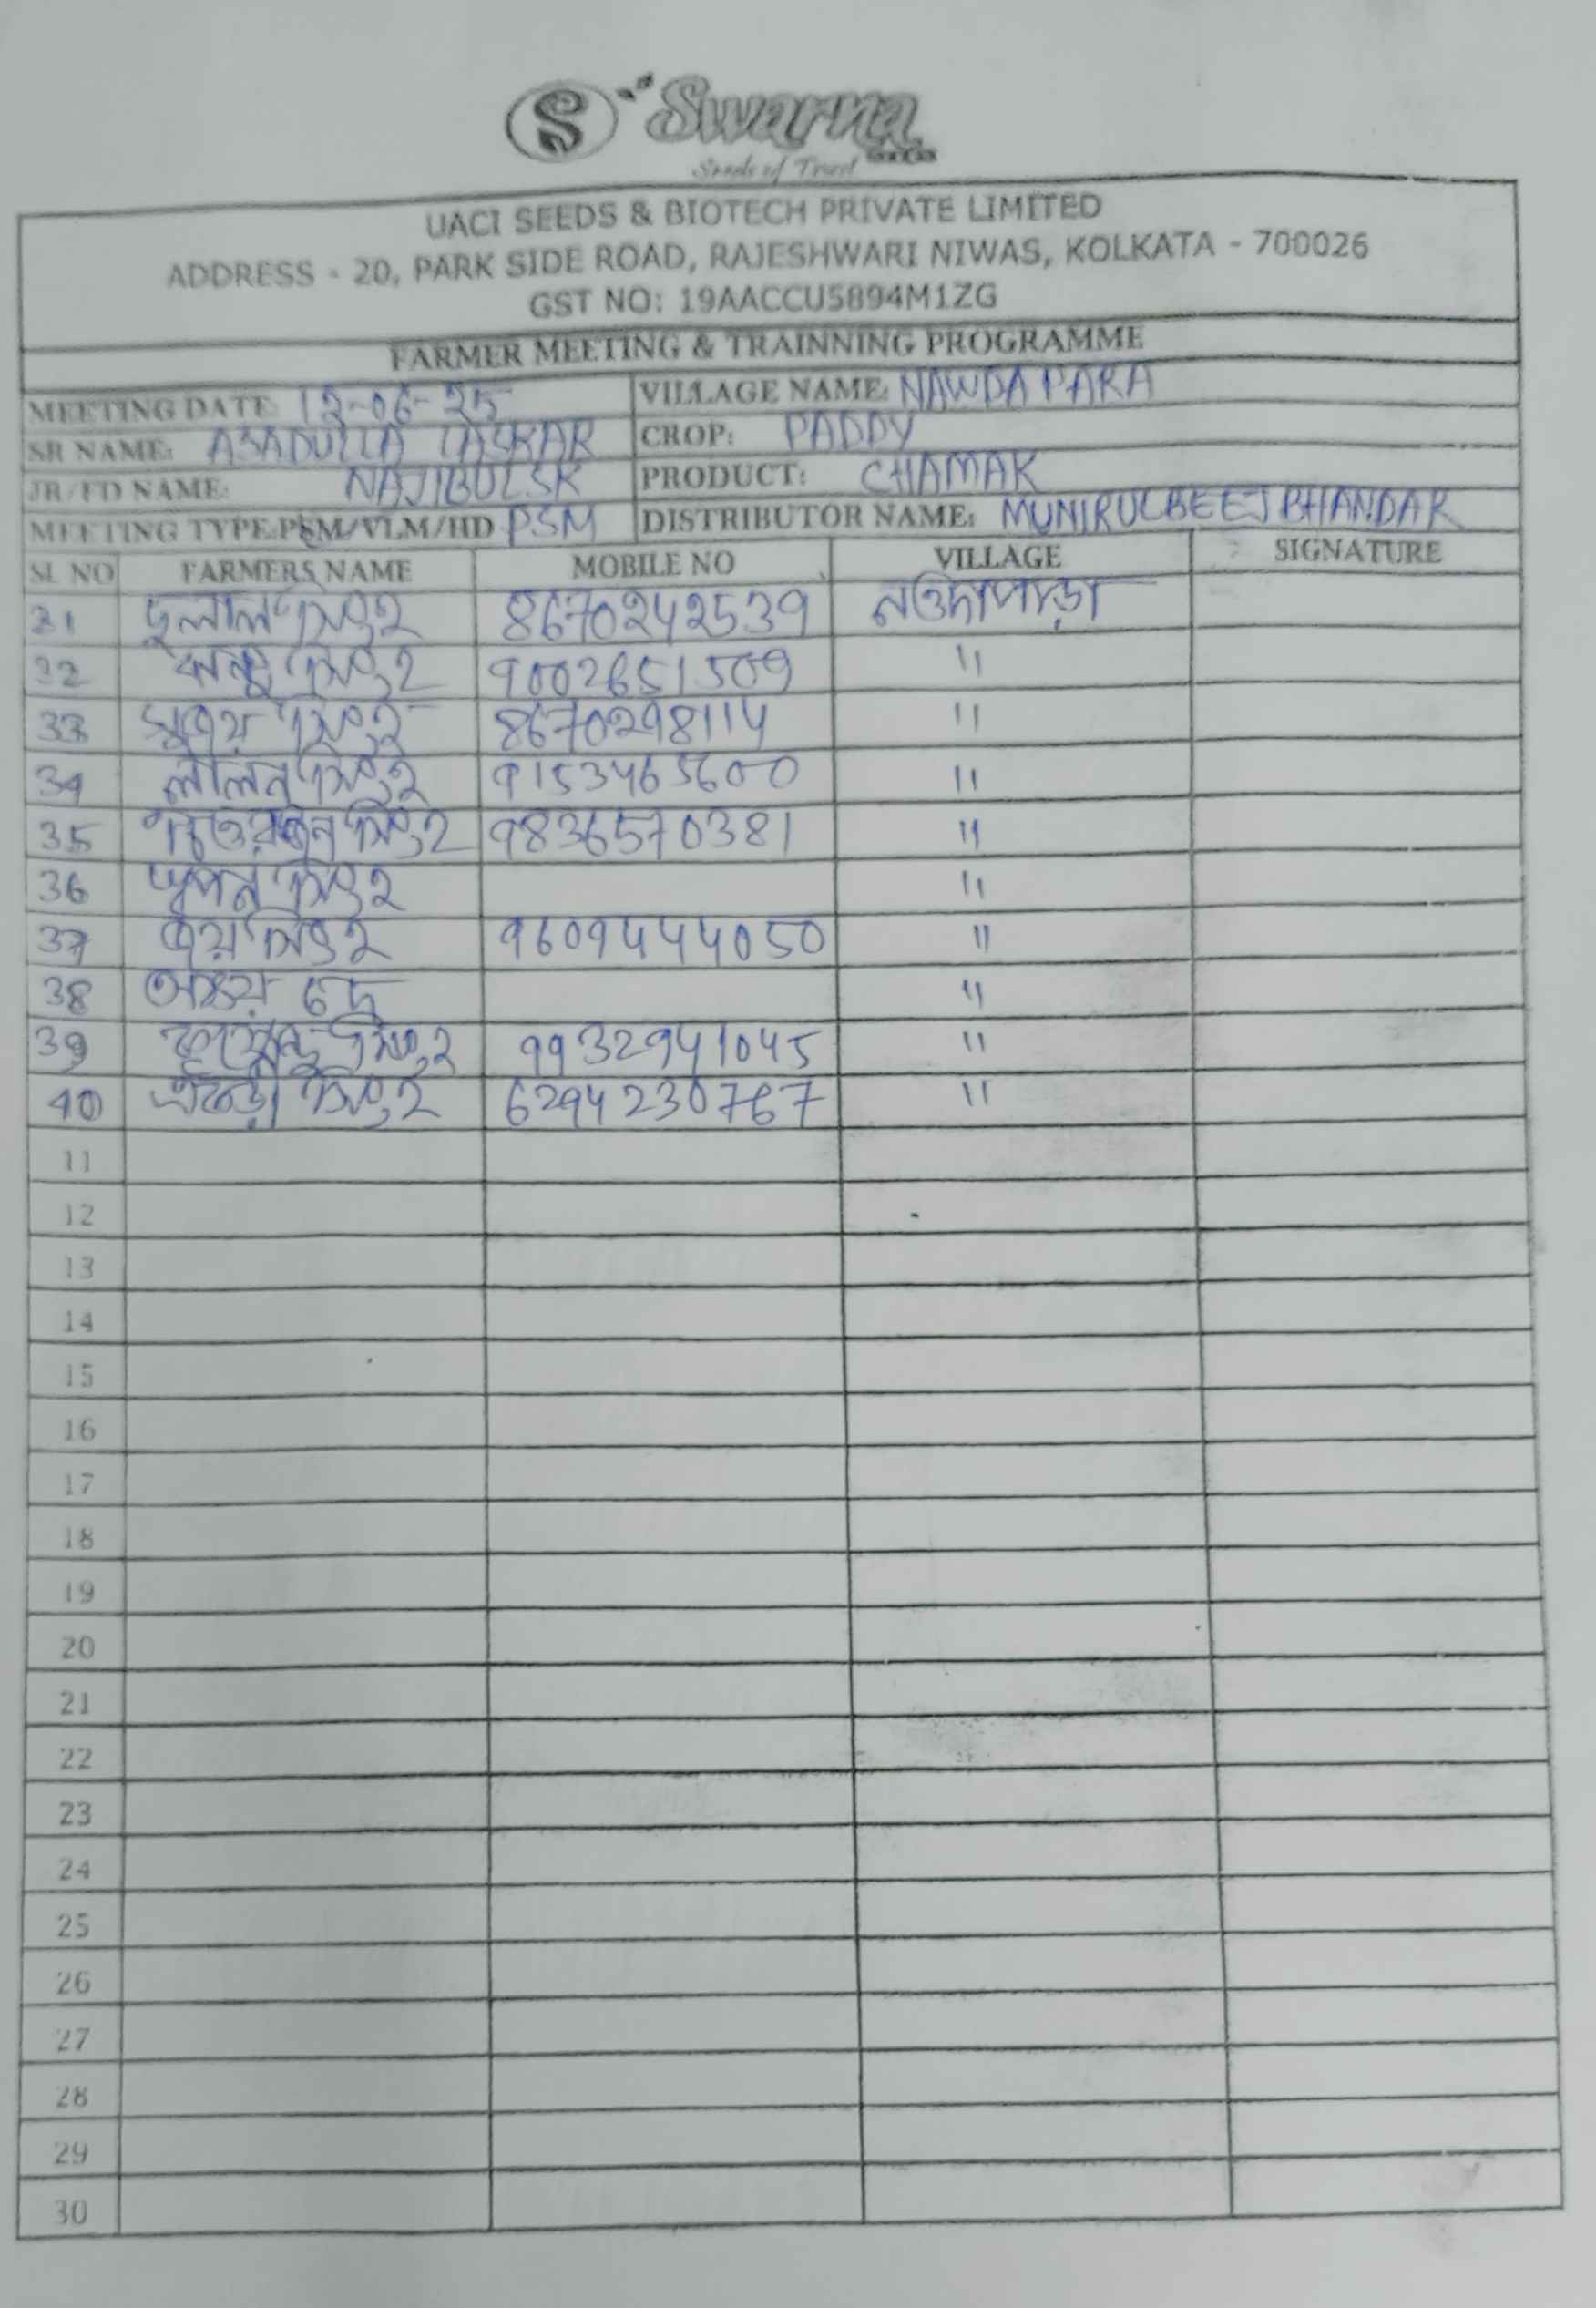 S Swarna
Seeds of Trust
UACI SEEDS & BIOTECH PRIVATE LIMITED
ADDRESS - 20, PARK SIDE ROAD, RAJESHWARI NIWAS, KOLKATA - 700026
GST NO: 19AACCU5894M1ZG
FARMER MEETING & TRAINNING PROGRAMME
MEETING DATE: 12-06-25 VILLAGE NAME: NAWDA PARA
SR NAME: ASADULLA LASKAR CROP: PADDY
JR/FD NAME: NAJIBUL SK PRODUCT: CHAMAK
MEETING TYPE:PSM/VLM/HD PSM DISTRIBUTOR NAME: MUNIRUL BEEJ BHANDAR
SL NO FARMERS NAME MOBILE NO VILLAGE SIGNATURE
31 দুলাল সিংহ 8670242539 নওদাপাড়া
32 সিংহ 9002651509 "
33 সুজয় সিংহ 8670298114 "
34 লালন সিংহ 9153465600 "
35 সিংহ 9836570381 "
36 স্বপন সিংহ "
37 জয় সিংহ 9609444050 "
38 অক্ষয় দে "
39 সিংহ 9932941045 "
40 সিংহ 6294230767 "
11
12
13
14
15
16
17
18
19
20
21
22
23
24
25
26
27
28
29
30